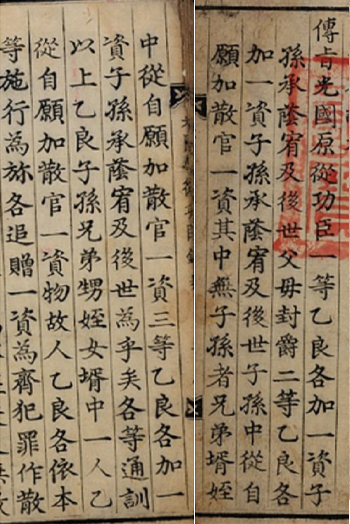 傳旨光國原從功臣一等乙良各加一資子
孫承蔭宥及後世父母封爵二等乙良各
加一資子孫承蔭宥及後世子孫中從自
願加散官一資其中無子孫者兄弟壻姪
中從自願加散官一資三等乙良各加一
資子孫承蔭宥及後世為乎矣各等通訓
以上乙良子孫兄弟甥姪女壻中一人乙
從自願加散官一資物故人乙良各依本
等施行為旀各追贈一資為齊犯罪作散